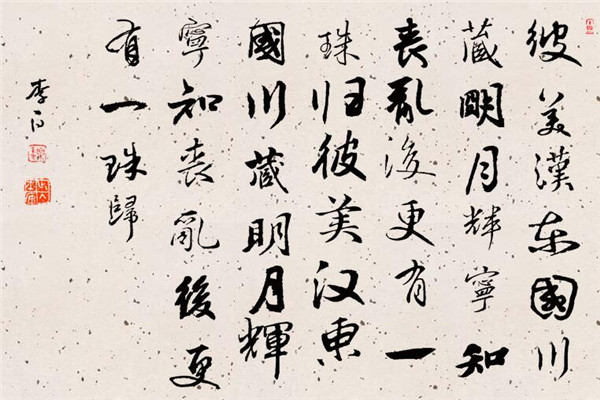 彼美漢东國川
藏明月輝寧知
喪亂後更有一
珠归彼美汉東
國川藏明月輝
寧知喪亂後更
有一珠歸
李白